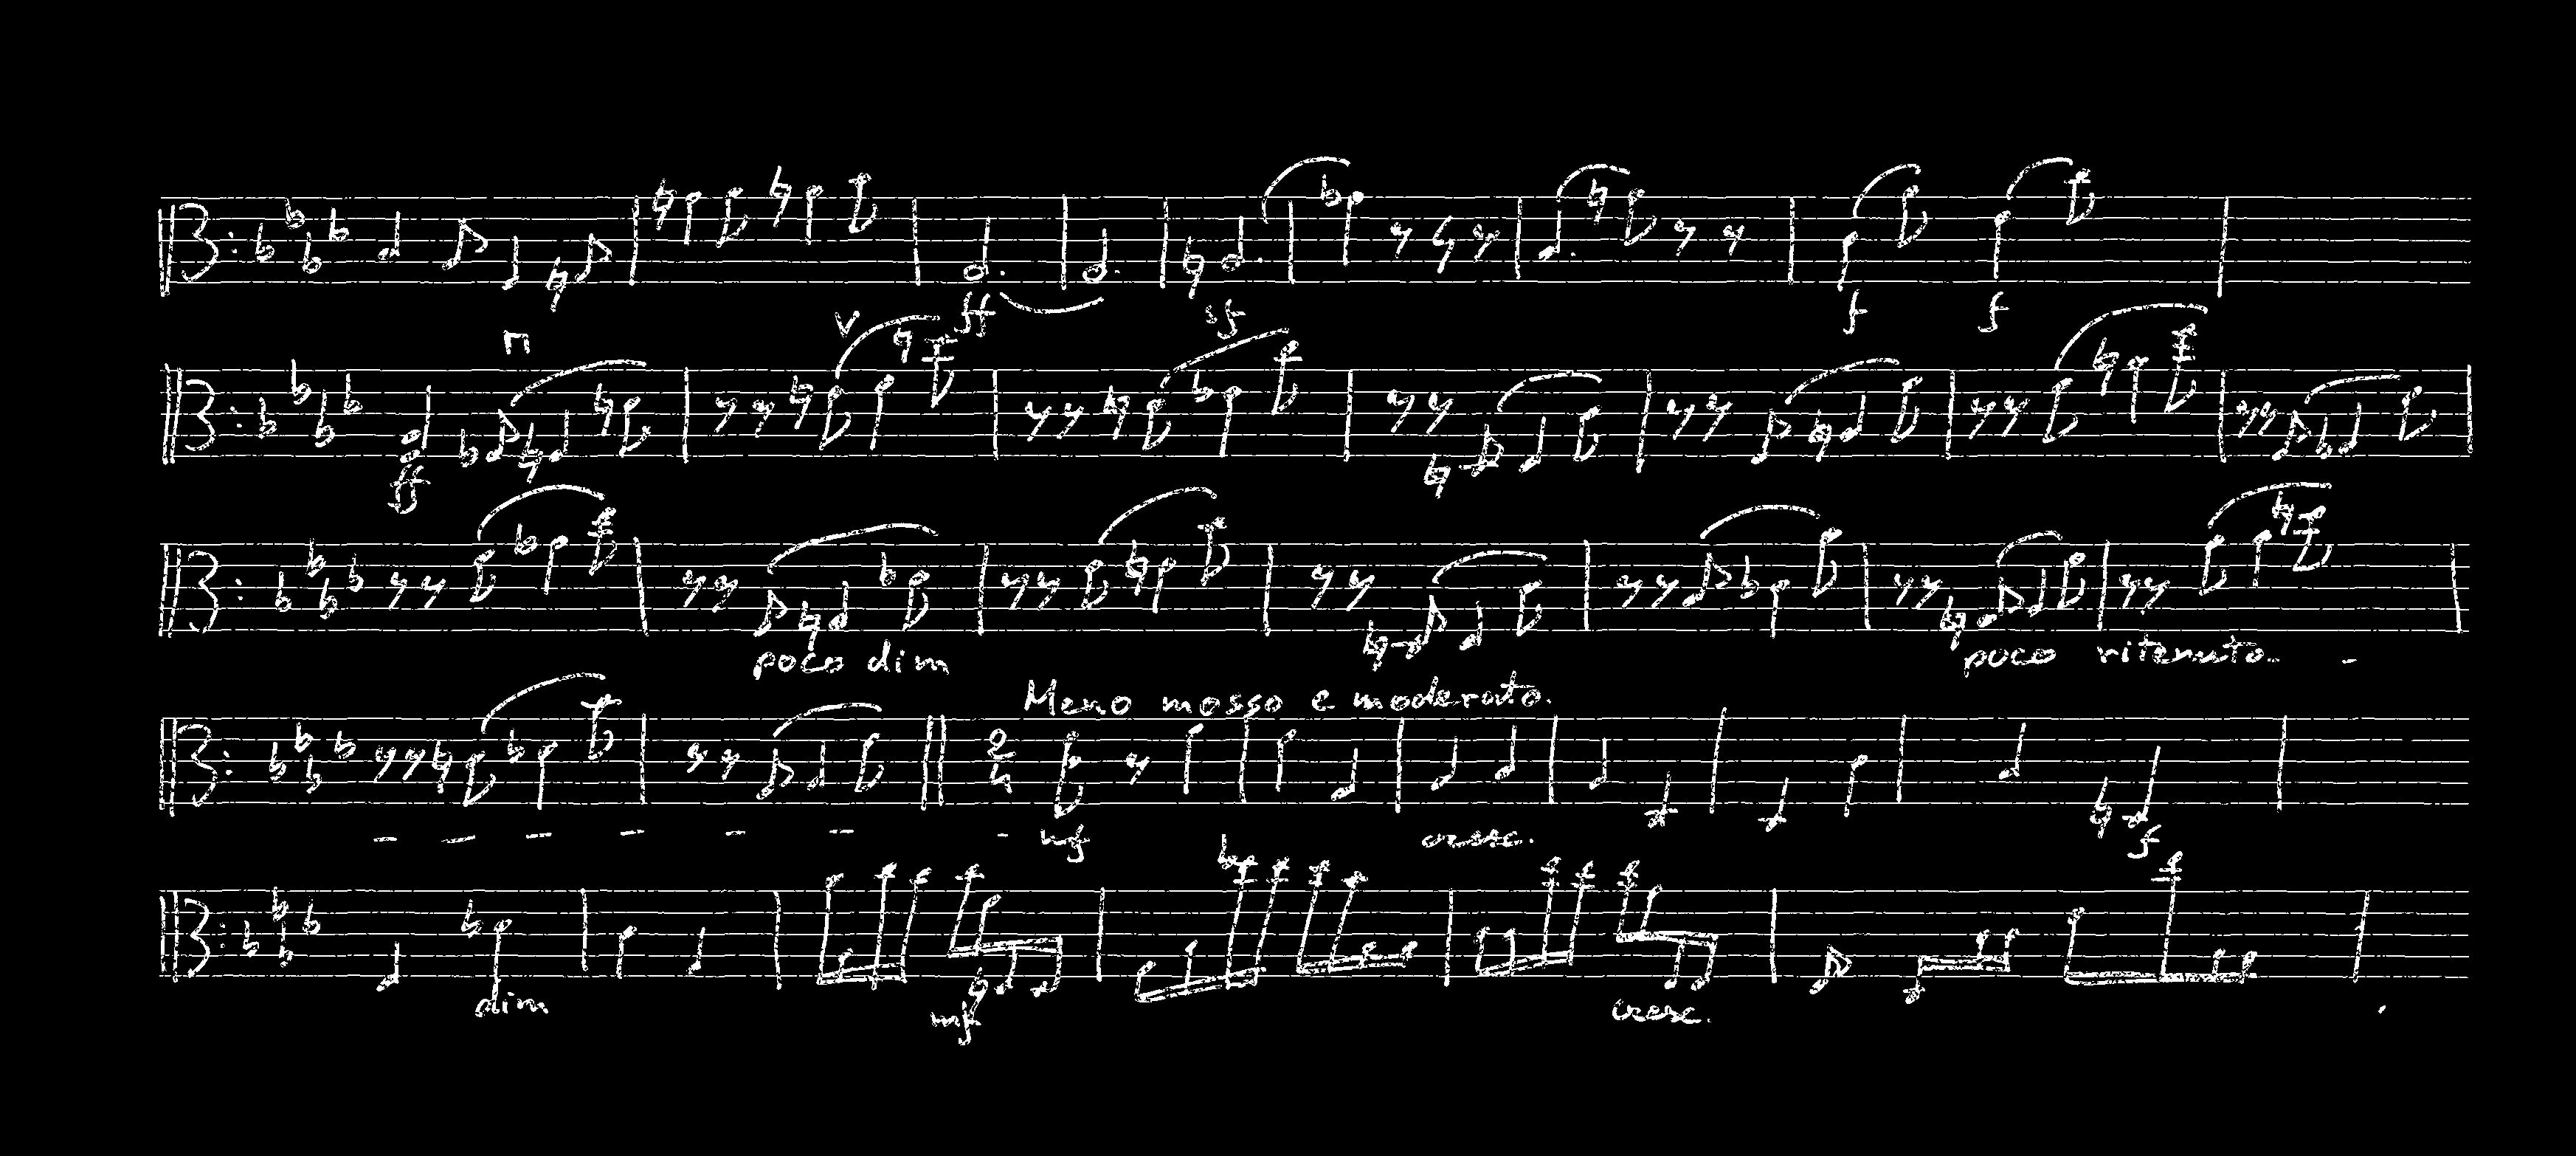 ff sf f f
ff
poco dim poco ritenuto. -
Meno mosso e moderato.
2
4
- - - - - - - mf cresc. f
dim mf cresc.